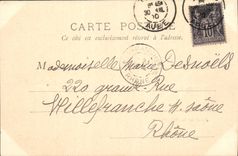 CARTE POSTALE
Ce côté est exclusivement réservé à l'adresse.
Mademoiselle Marie Desnoëls
220 grande Rue
Villefranche s. Saône
Rhône
10
RHONE